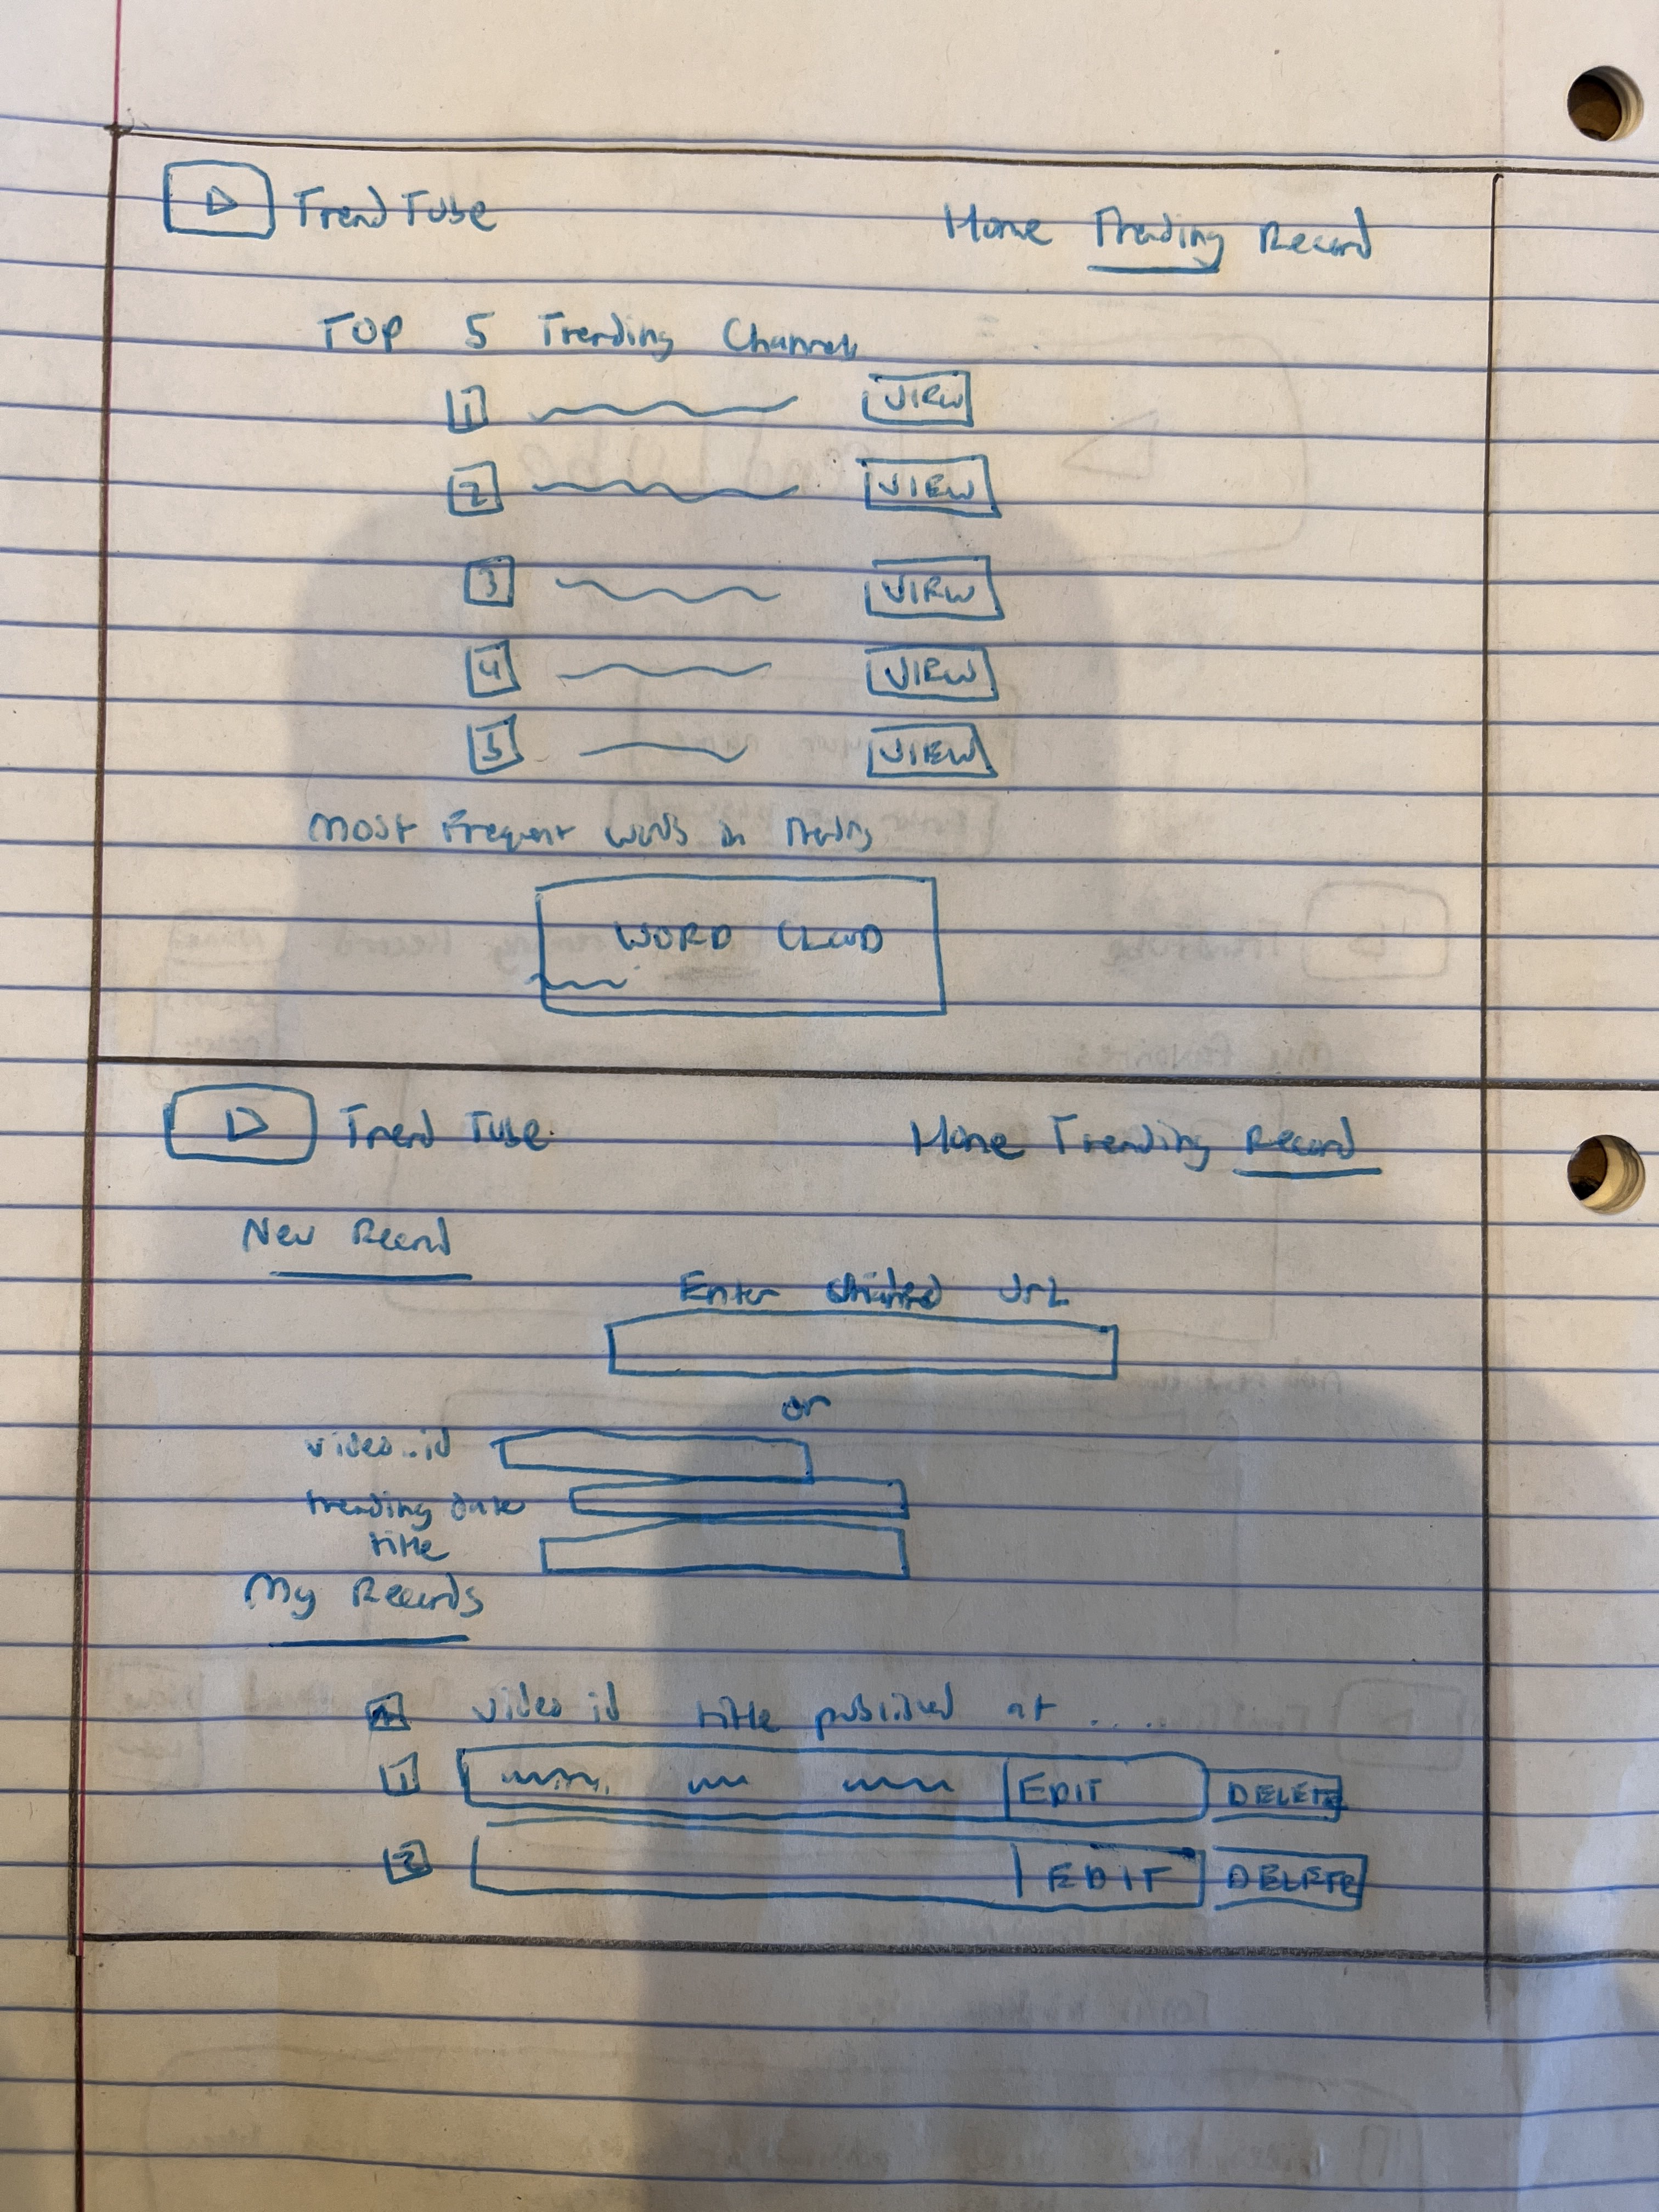 Trend Tube
Home Trending Record
TOP 5 Trending Channels
1 VIEW
2 VIEW
3 VIEW
4 VIEW
5 VIEW
Most Frequent words in Trending
WORD CLOUD
Trend Tube
Home Trending Record
New Record
Enter URL
or
video_id
trending date
title
My Records
video id title published at ....
1 EDIT DELETE
2 EDIT DELETE